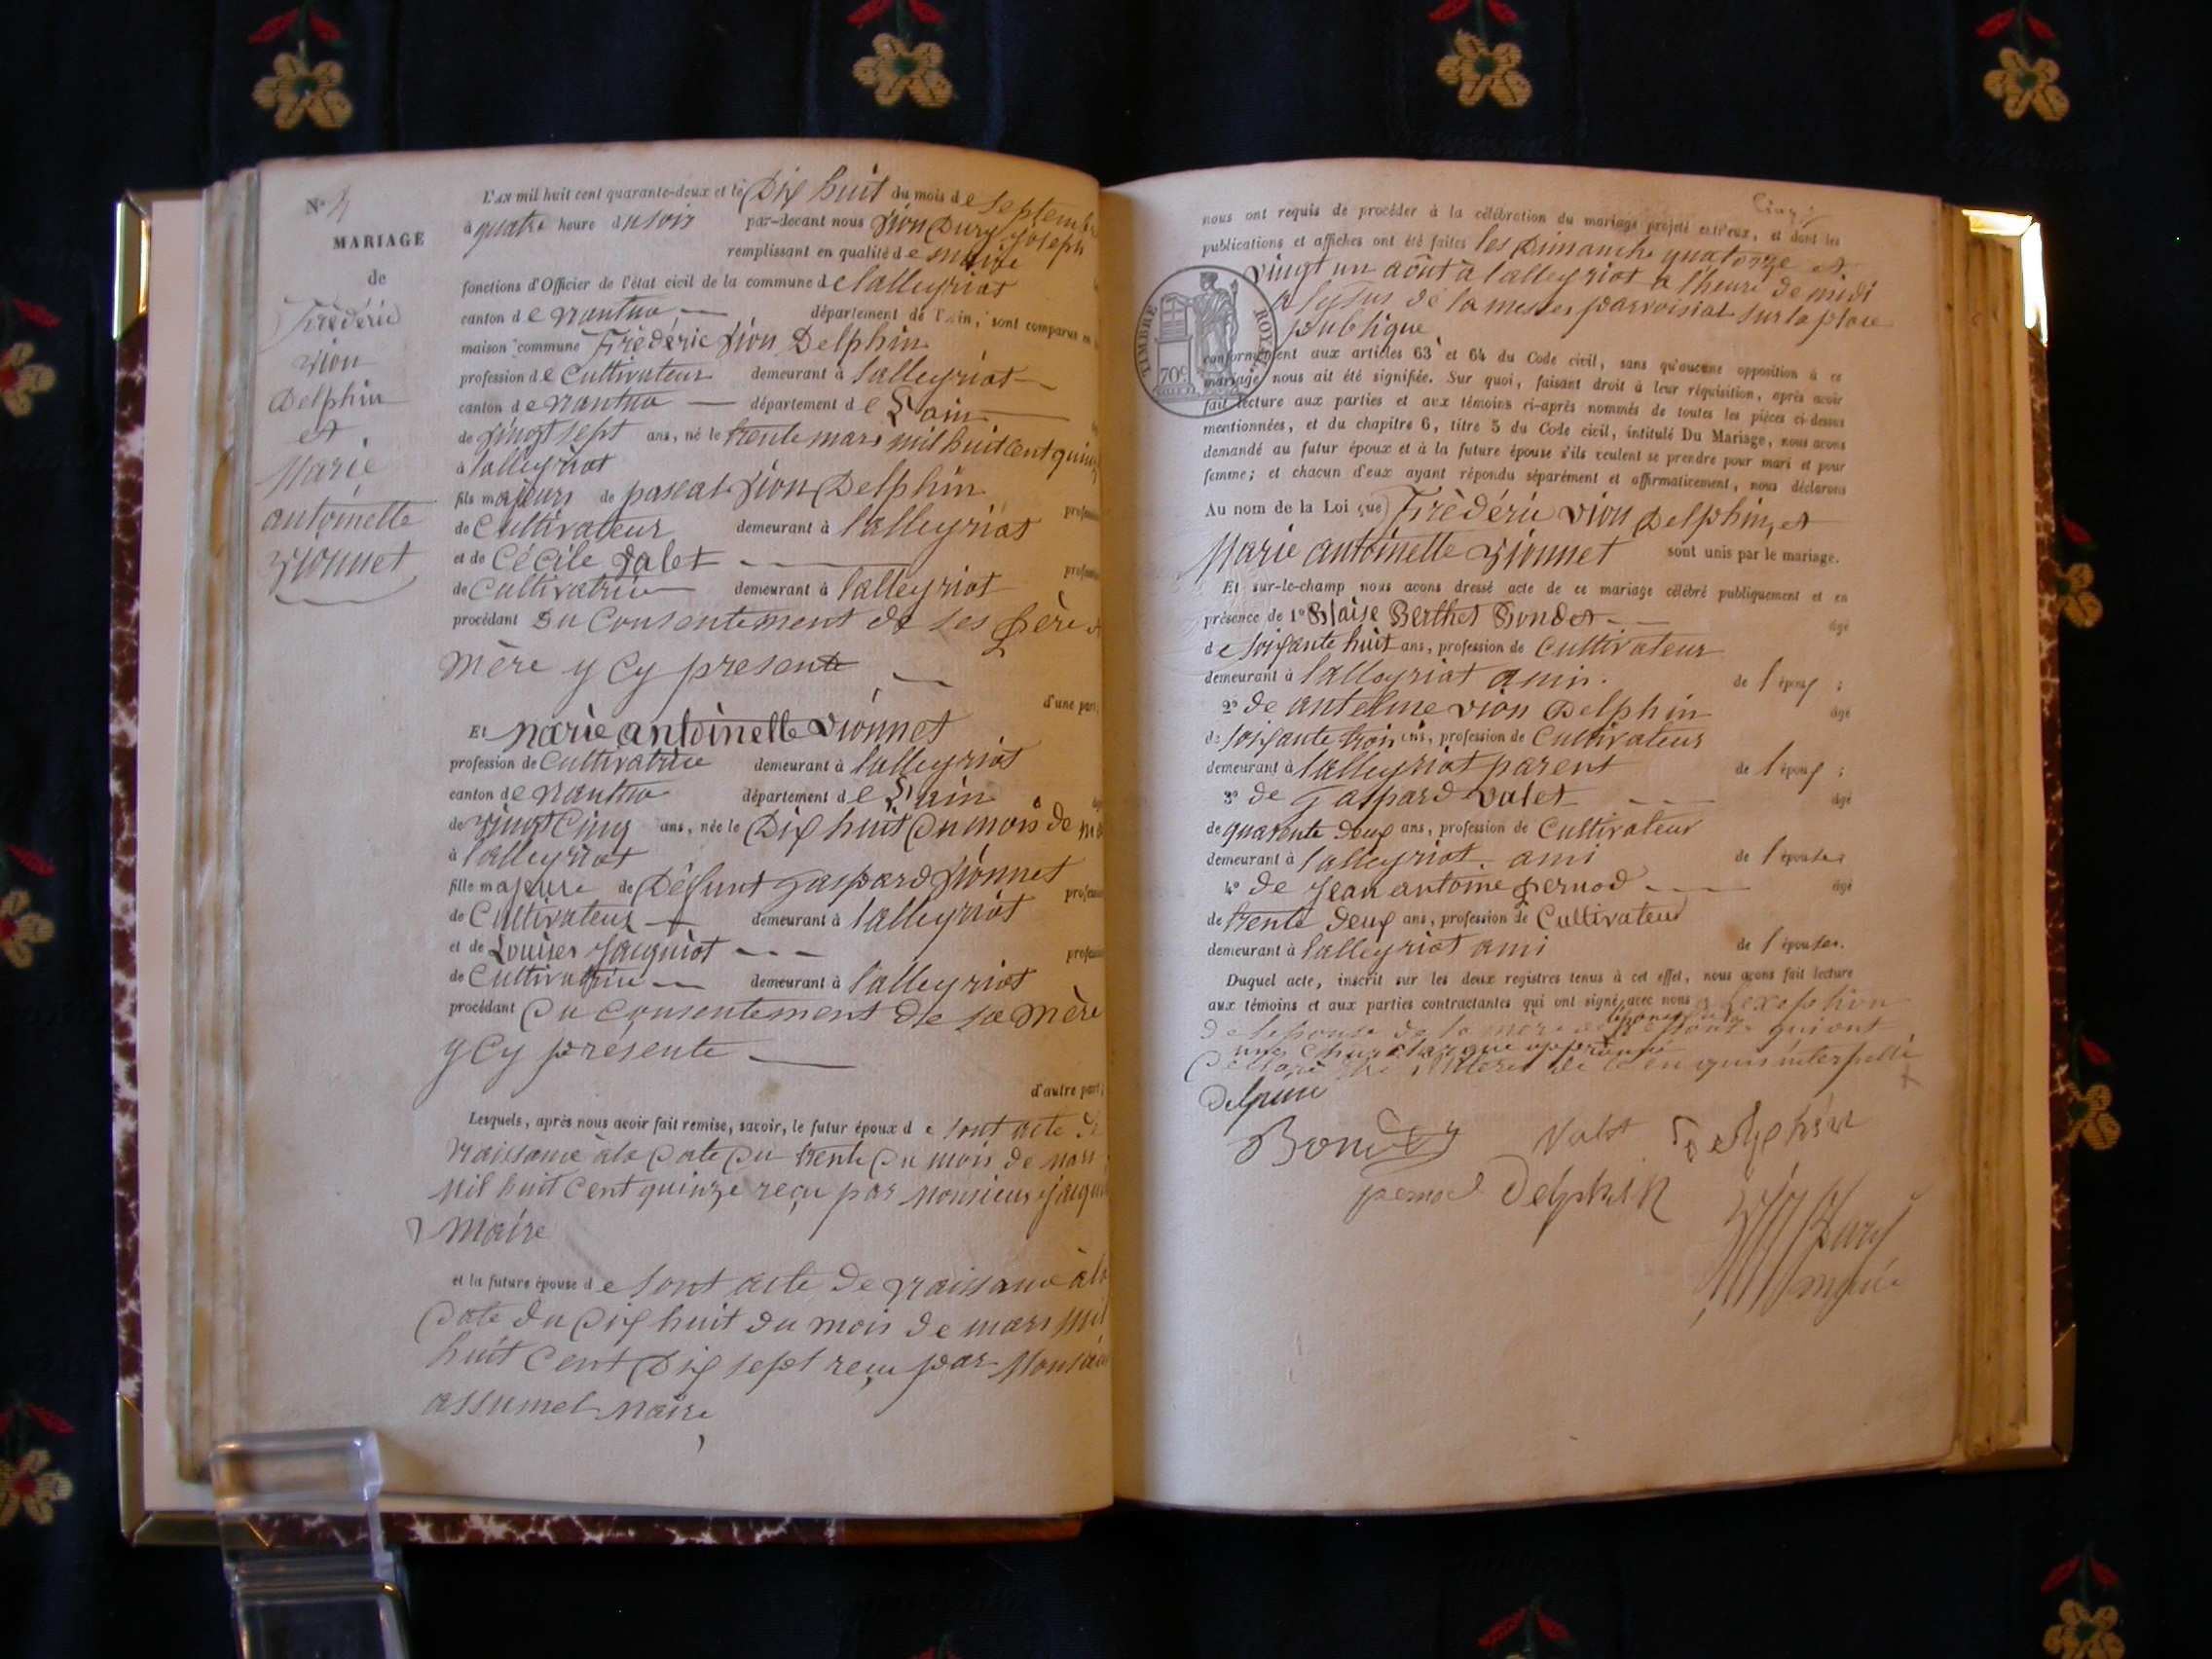 N° 4
MARIAGE
de
Frédéric
vion
Delphin
et
Marie
antoinette
vionnet
L'AN mil huit cent quarante-deux et le Dix huit du mois de septembre
à quatre heure du soir par-devant nous vion Dury Joseph
remplissant en qualité de maire
fonctions d'Officier de l'état civil de la commune de lalleyriat
canton de nantua département de l'Ain, sont comparus en
maison commune Frédéric vion Delphin
profession de Cultivateur demeurant à lalleyriat
canton de nantua département de L'ain
de vingt sept ans, né le trente mars mil huit cent quinze
à lalleyriat
fils majeurs de pascal vion Delphin profession
de Cultivateur demeurant à lalleyriat
et de Cécile valet profession
de Cultivatrice demeurant à lalleyriat
procédant Du Consentement de ses père et
mère y Cy presente
d'une part;
Et marie antoinette vionnet
profession de Cultivatrice demeurant à lalleyriat
canton de nantua département de L'ain
de vingt Cinq ans, née le Dix huit Du mois de
à lalleyriat
fille majeure de Défunt gaspard vionnet profession
de Cultivateur demeurant à lalleyriat
et de Louise Jauquiot profession
de Cultivatrice demeurant à lalleyriat
procédant Du Consentement de sa mère
y Cy présente
d'autre part;
Lesquels, après nous avoir fait remise, savoir, le futur époux de sont acte de
naissance à la Date Du trente Du mois de mars
mil huit Cent quinze reçu par monsieur
maire
et la future épouse de sont acte de naissance à la
Date du Dix huit du mois de mars mil
huit Cent Dix sept reçu par Monsieur
assumel maire
Cinq
nous ont requis de procéder à la célébration du mariage projeté entr'eux, et dont les
publications et affiches ont été faites les Dimanche quatorze et
vingt un août à lalleyriat a l'heure de midi
a lissus de la messes parroisial sur la place
publique
TIMBRE ROYAL
70c
conformément aux articles 63 et 64 du Code civil, sans qu'aucune opposition à ce
mariage nous ait été signifiée. Sur quoi, faisant droit à leur réquisition, après avoir
fait lecture aux parties et aux témoins ci-après nommés de toutes les pièces ci-dessus
mentionnées, et du chapitre 6, titre 5 du Code civil, intitulé Du Mariage, nous avons
demandé au futur époux et à la future épouse s'ils veulent se prendre pour mari et pour
femme; et chacun d'eux ayant répondu séparément et affirmativement, nous déclarons
Au nom de la Loi que Frédéric vion Delphin, et
Marie antoinette vionnet sont unis par le mariage.
Et sur-le-champ nous avons dressé acte de ce mariage célébré publiquement et en
présence de 1° Blaise Berthet Bondet âgé
de soixante huit ans, profession de Cultivateur
demeurant à lalleyriat amin. de l'époux ;
2° de antelme vion Delphin âgé
de soixante trois ans, profession de Cultivateur
demeurant à lalleyriat parent de l'époux ;
3° de gaspard valet âgé
de quarante deux ans, profession de Cultivateur
demeurant à lalleyriat. ami de l'épouse
4° de Jean antoine pernod âgé
de trente Deux ans, profession de Cultivateur
demeurant à lalleyriat ami de l'épouse.
Duquel acte, inscrit sur les deux registres tenus à cet effet, nous avons fait lecture
aux témoins et aux parties contractantes qui ont signé avec nous a lexception
de lepouse de la mere qui ont
interpellé
Delphin
Bondet Valet Delphin
pernod Delphin
Dury
maire